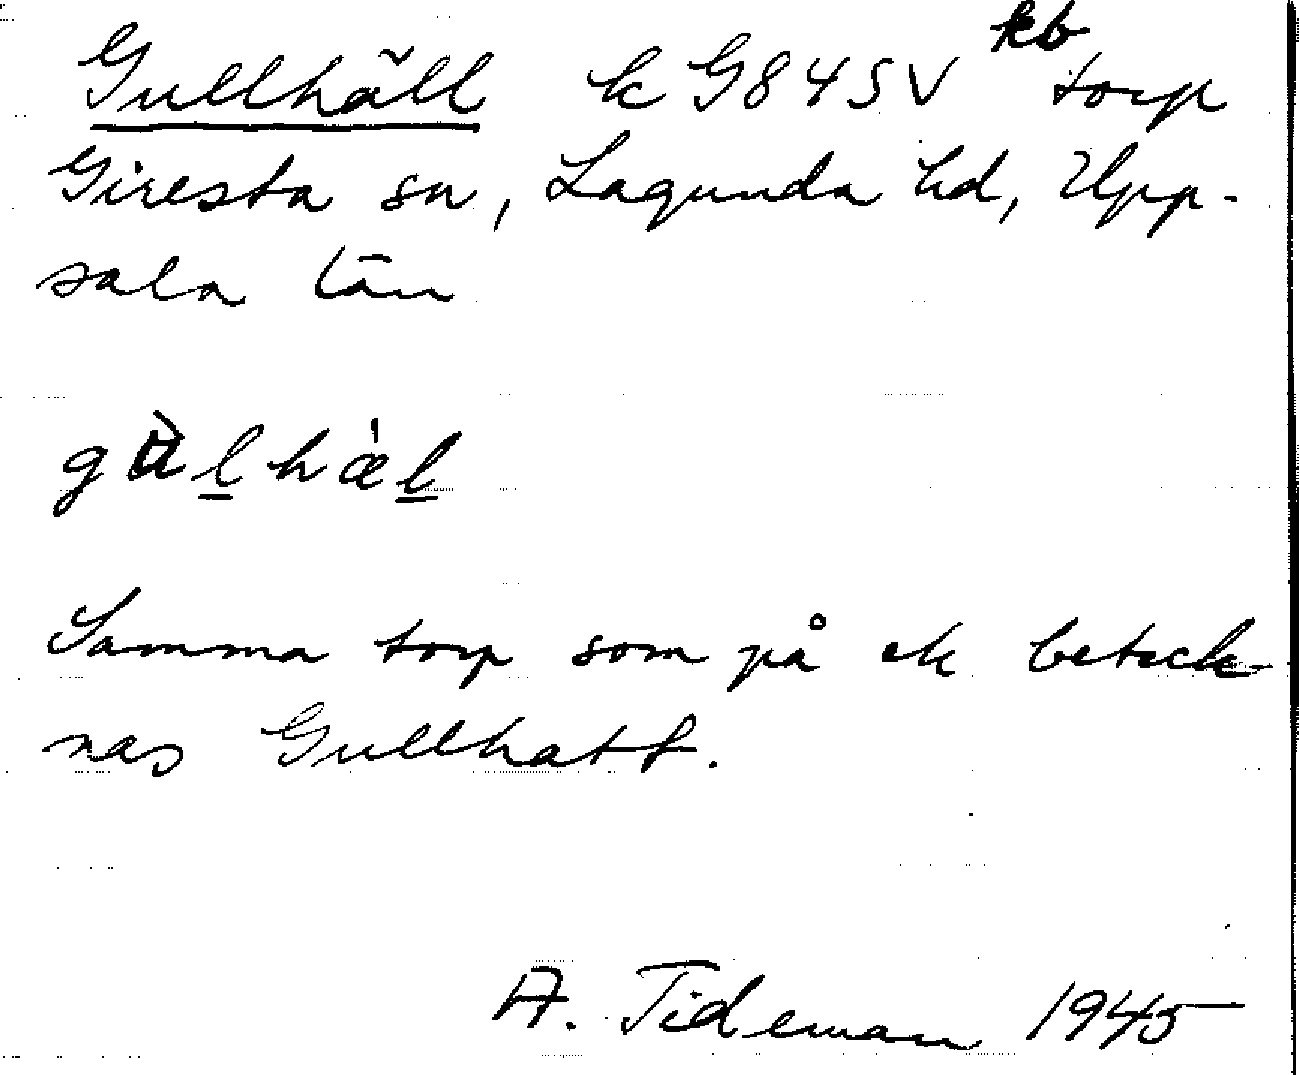 Gullhäll k G84SV kb torp
Giresta sn, Lagunda hd, Upp-
sala län
gùlhæ̀l
Samma torp som på ek beteck-
nas Gullhatt.
A. Tideman 1945